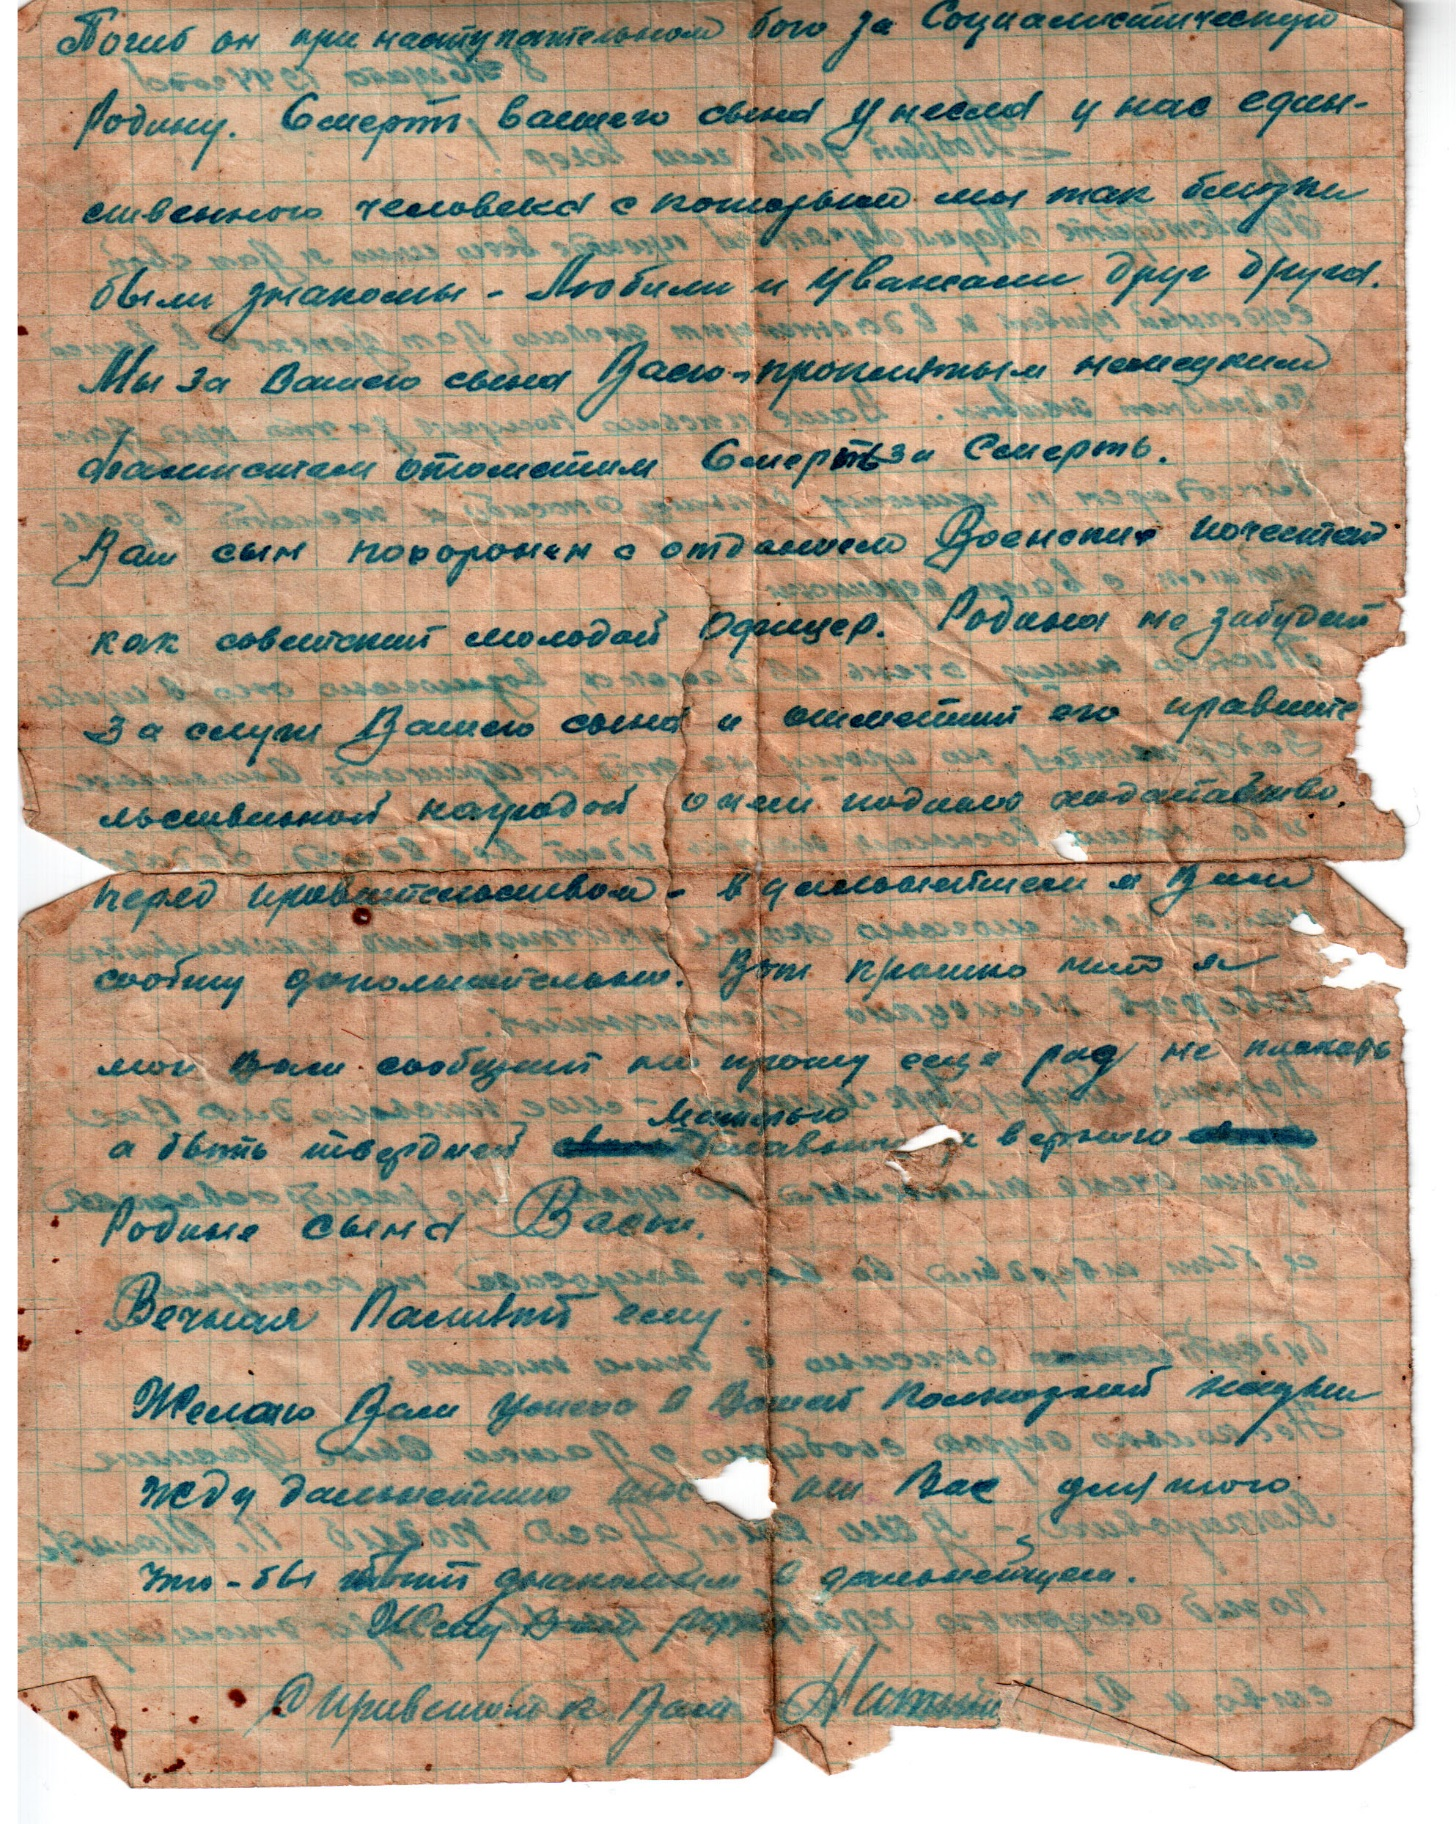 Погиб он при наступательном бою за Социалистическую
Родину. Смерть вашего сына унесла у нас един-
ственного человека с которым мы так близки
были знакомы - Любили и уважали друг друга.
Мы за Вашего сына Васю - проклятым немецким
фашистам отомстим Смерть за Смерть.
Ваш сын похоронен с отданием Военских почестей
как советский молодой Офицер. Родина не забудет
заслуги Вашего сына и отметит его правите
льственной наградой о чем подано ходатайство.
перед правительством - в дальнейшем я Вам
сообщу дополнительно. Вот кратко что я
мог Вам сообщить но прошу еще раз не плакать
а быть твердней Матерью славного и верного
Родине сына Васи.
Вечная Память ему.
Желаю Вам успеха в Вашей жизни
Жду дальнейшего от Вас для того
что-бы быть знакомым в дальнейшем.
Жму Вам руку
С приветом к Вам